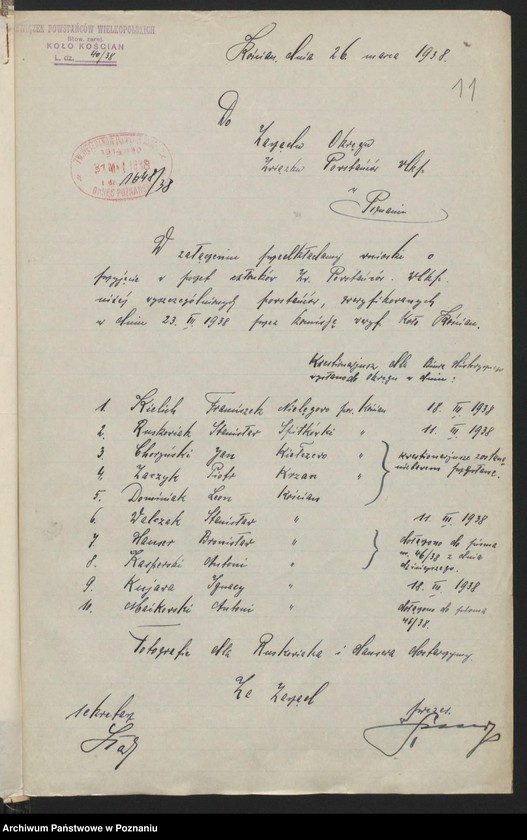 ZWIĄZEK POWSTAŃCÓW WIELKOPOLSKICH
Stow. zarej.
KOŁO KOŚCIAN
L. dz. 40/38
Kościan, dnia 26 marca 1938.
11
Do
Zarządu Okręgu
Związku Powstańców Wlkp.
w
Poznaniu
1648/38
W załączeniu przedkładamy wnioski o
przyjęcie w poczet członków Zw. Powstańców Wlkp.
niżej wyszczególnionych powstańców, zweryfikowanych
w dniu 23. III 1938 przez komisję weryf. Koła Kościan.
Kwestionariusz dla Biura Historycznego
wysłano do Okręgu w dniu:
1. Kielich Franciszek Nielęgowo pow. Kościan 18. III. 1938
2. Ruskowiak Stanisław Spytkówki " 11. III. 1938
3. Choryński Jan Kiełczewo "
4. Zaczyk Piotr Krzan "
kwestionariusze zostaną
przysłane.
5. Dominiak Leon Kościan
6. Walczak Stanisław " 11. III. 1938
7. Hauser Bronisław "
8. Kasperski Antoni "
dołączono do pisma
nr. 46/38 z dnia
dzisiejszego.
9. Kujawa Ignacy " 18. III. 1938
10. Maikowski Antoni " dołączono do pisma
46/38.
Fotografie dla Ruskowiaka i Hausera dostarczymy.
Za Zarząd
sekretarz
prezes.
Archiwum Państwowe w Poznaniu